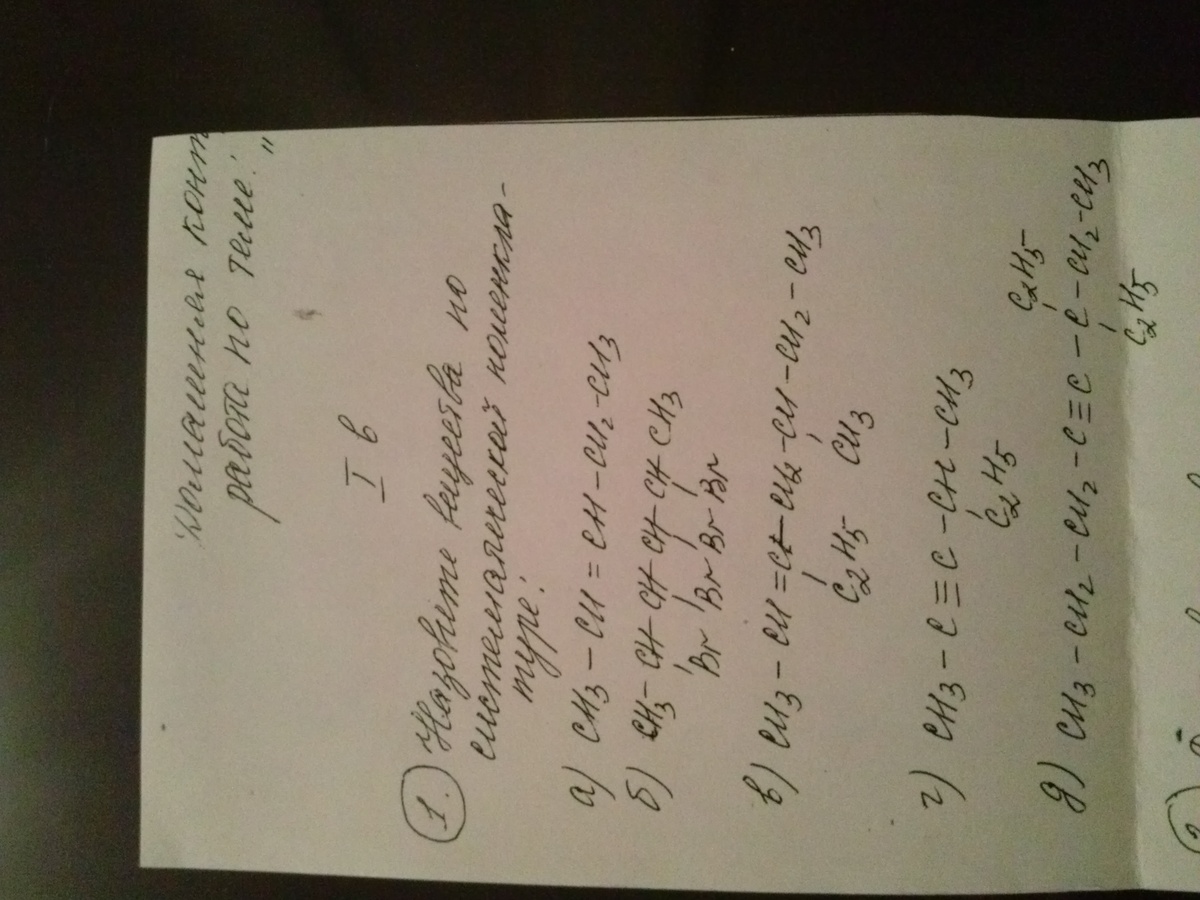 "Домашняя конт
работа по теме: "
I в
1. Назовите вещества по
систематической номенкла-
туре:
а) CH3 – CH = CH – CH2 – CH3
б) CH3 – CH CH CH CH CH3
Br Br Br Br
в) CH3 – CH = C – CH2 – CH – CH2 – CH3
C2H5 CH3
г) CH3 – C ≡ C – CH – CH3
C2H5
C2H5 –
д) CH3 – CH2 – CH2 – C ≡ C – C – CH2 – CH3
C2H5